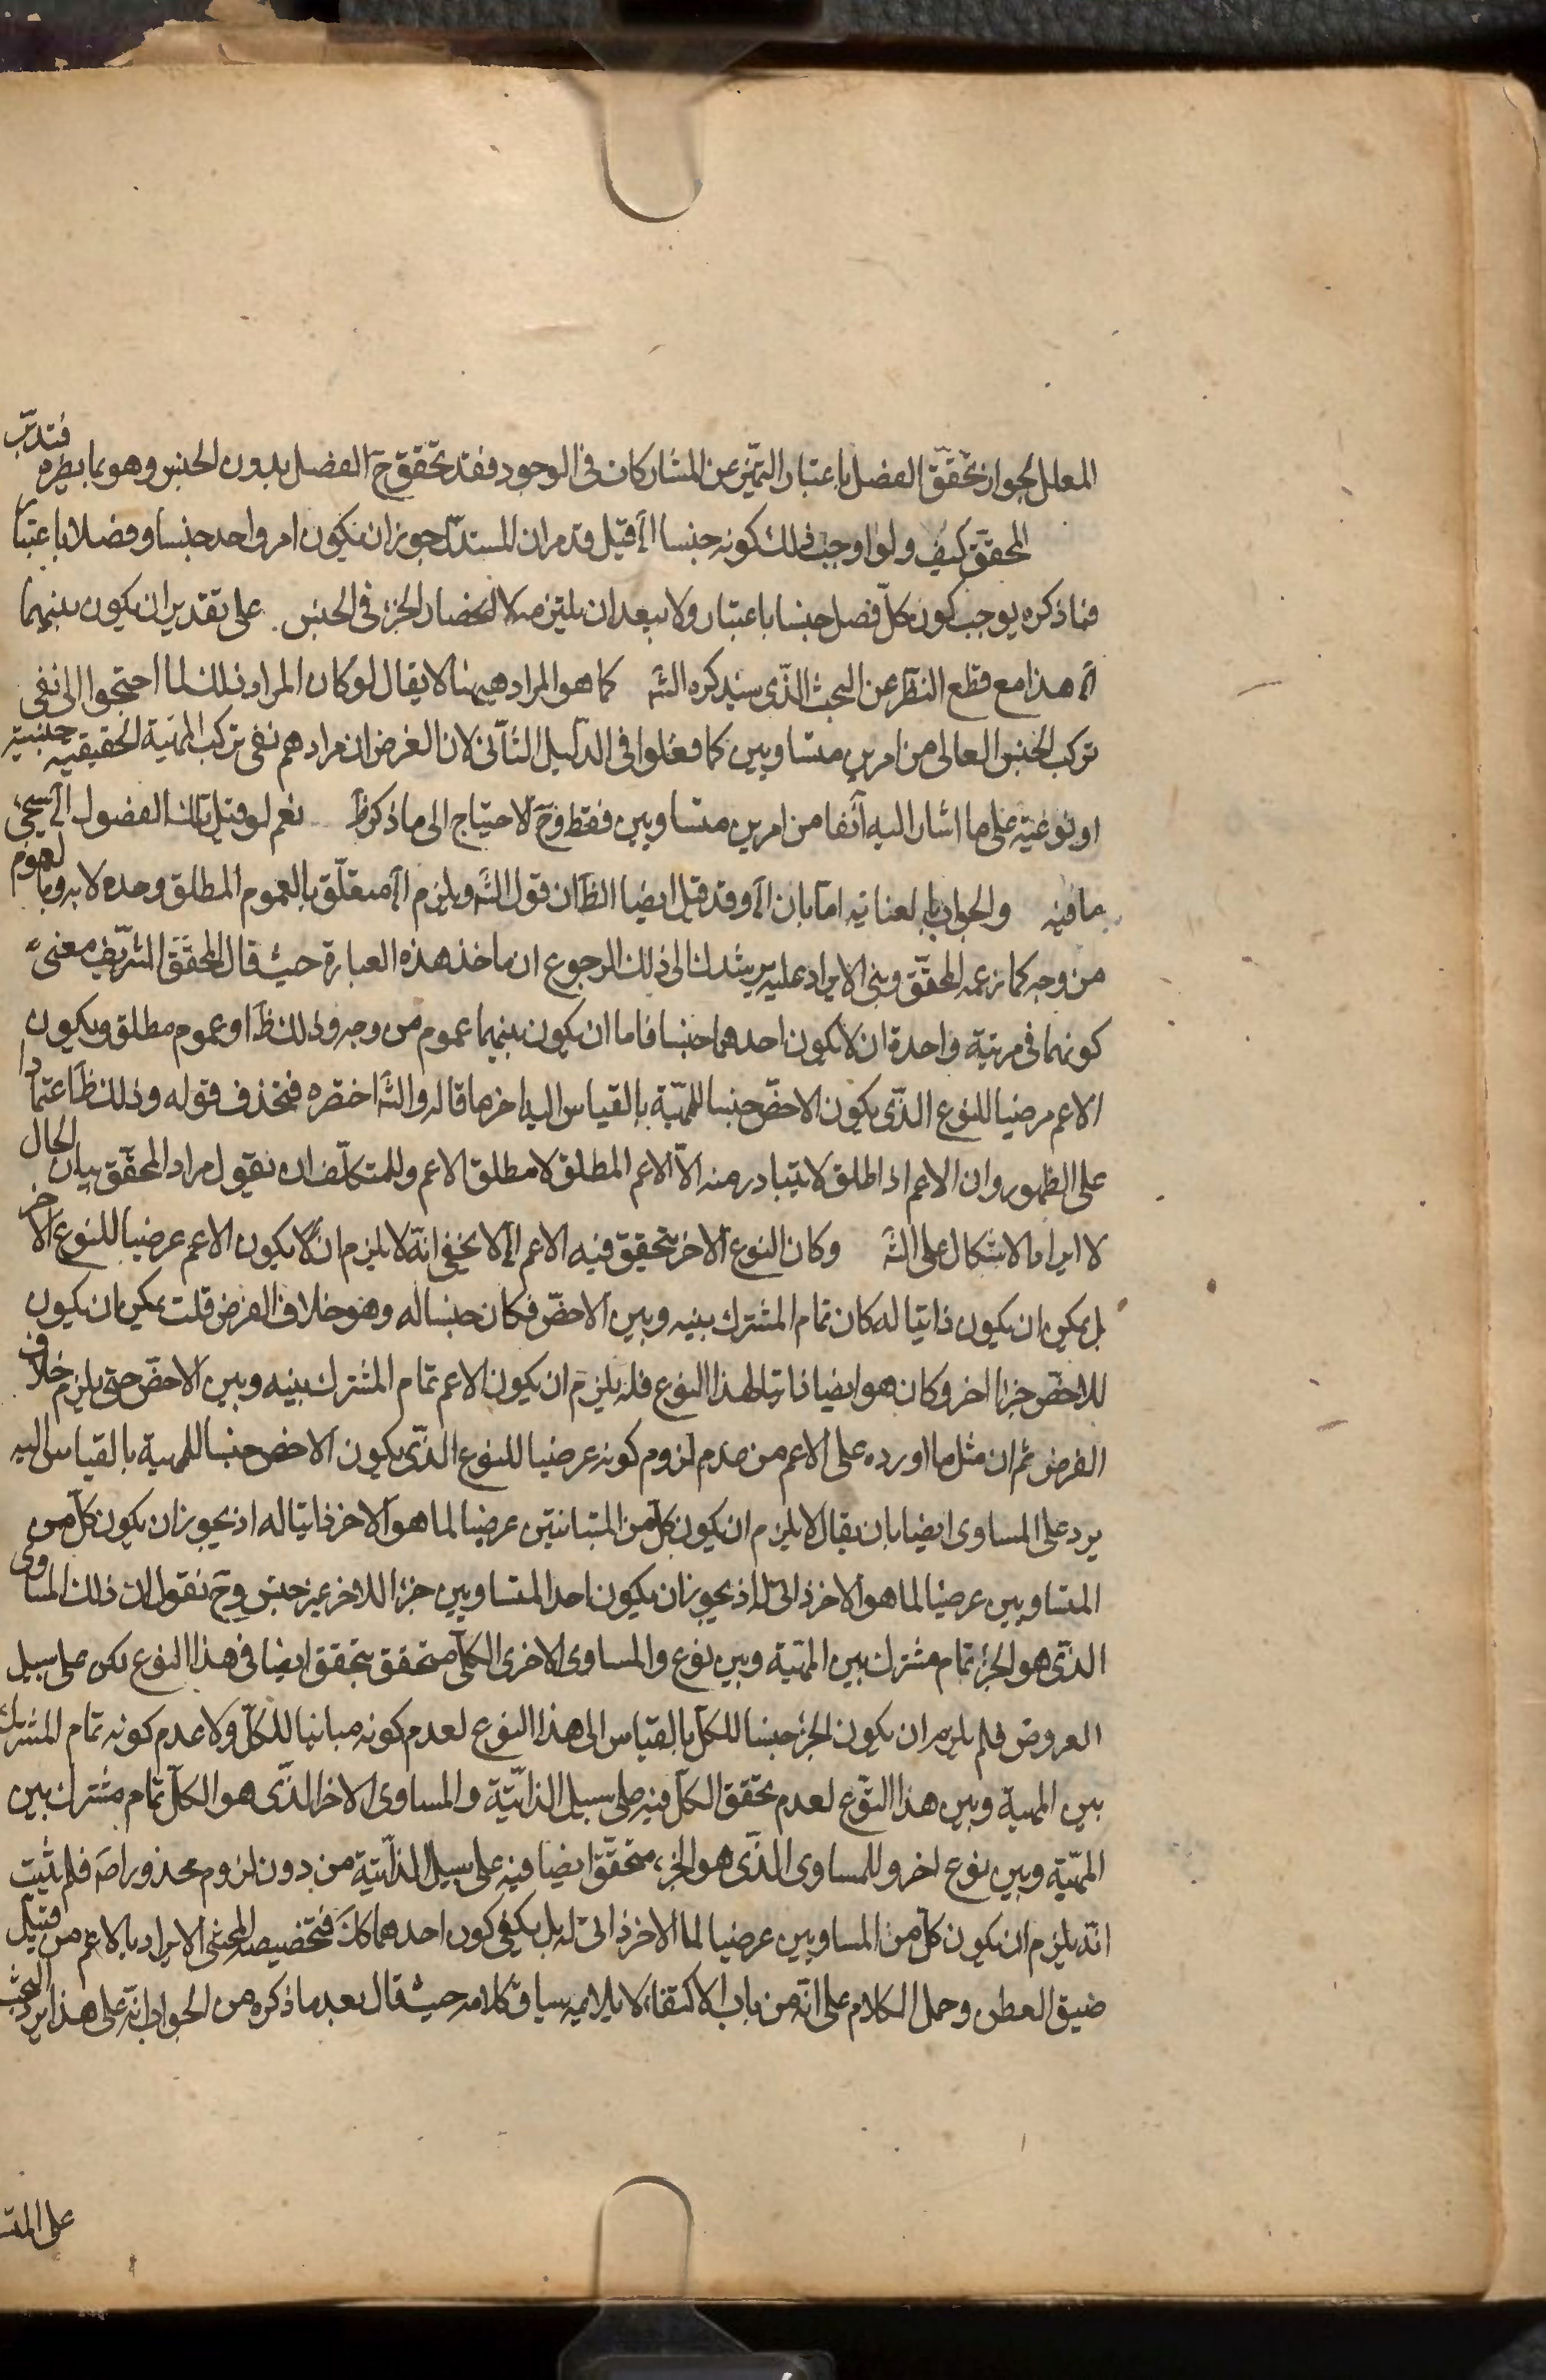 المعلل لجواز تحقق الفصل باعتبار التميز عن المشاركات في الوجود فقد تحقق ح الفصل بدون الجنس وهو مما يطرم فتدبر
المحقق كيف ولو اوجب ذلك كونه جنسا الخ قيل قد مر ان المستدل جوز ان يكون امر واحد جنسا وفصلا باعتبار
فما ذكره يوجب كون كل فصل جنسا باعتبار ولا يبعد ان يلتزم انحصار الجزء في الجنس على تقدير ان يكون بينهما
الخ هذا مع قطع النظر عن البحث الذي سيذكره الش كما هو المراد ههنا لا يقال لو كان المراد ذلك لما احتجوا الى نفي
تركب الجنس العالي من امرين متساويين كما فعلوا في الدليل الثاني لان الغرض ان مرادهم نفي تركب المهية الحقيقية جنسية
او نوعية على ما اشار اليه آنفا من امرين متساويين فقط وح لا احتياج الى ما ذكر ظ نعم لو قيل تلك الفصول الخ سيجئ
ما فيه والجواب لعناته اما بان الخ وقد قيل ايضا الظ ان قول الش ويلزم الخ متعلق بالعموم المطلق وحده لا به وبالعموم
من وجه كما زعمه المحقق وبنى الايراد عليه يرشدك الى ذلك الرجوع ان ماخذ هذه العبارة حيث قال المحقق الشريف معنى
كونهما في مرتبة واحدة ان لا يكون احدهما جنسا فاما ان يكون بينهما عموم من وجه وذلك ظ او عموم مطلق ويكون
الاعم عرضيا للنوع الذي يكون الاخص جنسا للمهية بالقياس اليه اخر ما قاله والش اختصره فحذف قوله وذلك ظ اعتمادا
على الظهور وان الاعم اذا اطلق لا يتبادر منه الا الاعم المطلق لا مطلق الاعم وللمتكلف ان يقول مراد المحقق بيان الحال
لا ايراد الاشكال على الش وكان النوع الاخر يتحقق فيه الاعم الخ لا يخفى انه لا يلزم ان لا يكون الاعم عرضيا للنوع الاخر
بل يمكن ان يكون ذاتيا له كان تمام المشترك بينه وبين الاخص فكان جنسا له وهو خلاف الفرض قلت يمكن ان يكون
للاخص جزء اخر وكان هو ايضا ذاتيا لهذا النوع فلا يلزم ان يكون الاعم تمام المشترك بينه وبين الاخص حتى يلزم خلاف
الفرض ثم ان مثل ما اورده على الاعم من عدم لزوم كونه عرضيا للنوع الذي يكون الاخص جنسا للمهية بالقياس اليه
يرد على المساوى ايضا بان يقال لا يلزم ان يكون كل من المتباينين عرضيا لما هو الاخر ذاتيا له اذ يجوز ان يكون كل من
المتساويين عرضيا لما هو الاخر ذاتي له اذ يجوز ان يكون احد المتساويين جزءا للاخر غير جنس وح نقول ان ذلك المساوى
الذي هو الجزء تمام مشترك بين المهية وبين نوع والمساوى الاخرى الكل متحقق يتحقق ايضا في هذا النوع لكن على سبيل
العروض فلم يلزم ان يكون الجزء جنسا للكل بالقياس الى هذا النوع لعدم كونه مباينا للكل ولا عدم كونه تمام المشترك
بين المهية وبين هذا النوع لعدم تحقق الكل فيه على سبيل الذاتية والمساوى الاخر الذي هو الكل تمام مشترك بين
المهية وبين نوع اخر والمساوى الذي هو الجزء متحقق ايضا فيه على سبيل الذاتية من دون لزوم محذور اصلا فلم يثبت
انه يلزم ان يكون كل من المساويين عرضيا لما الاخر ذاتي له بل يكفي كون احدهما كك فتخصيص المحشى الايراد بالاعم من قبيل
ضيق العطن وحمل الكلام على انه من باب الاكتفاء لا يلايمه سياق كلامه حيث قال بعد ما ذكره من الجواب انه على هذا يرد البحث
على المتـ